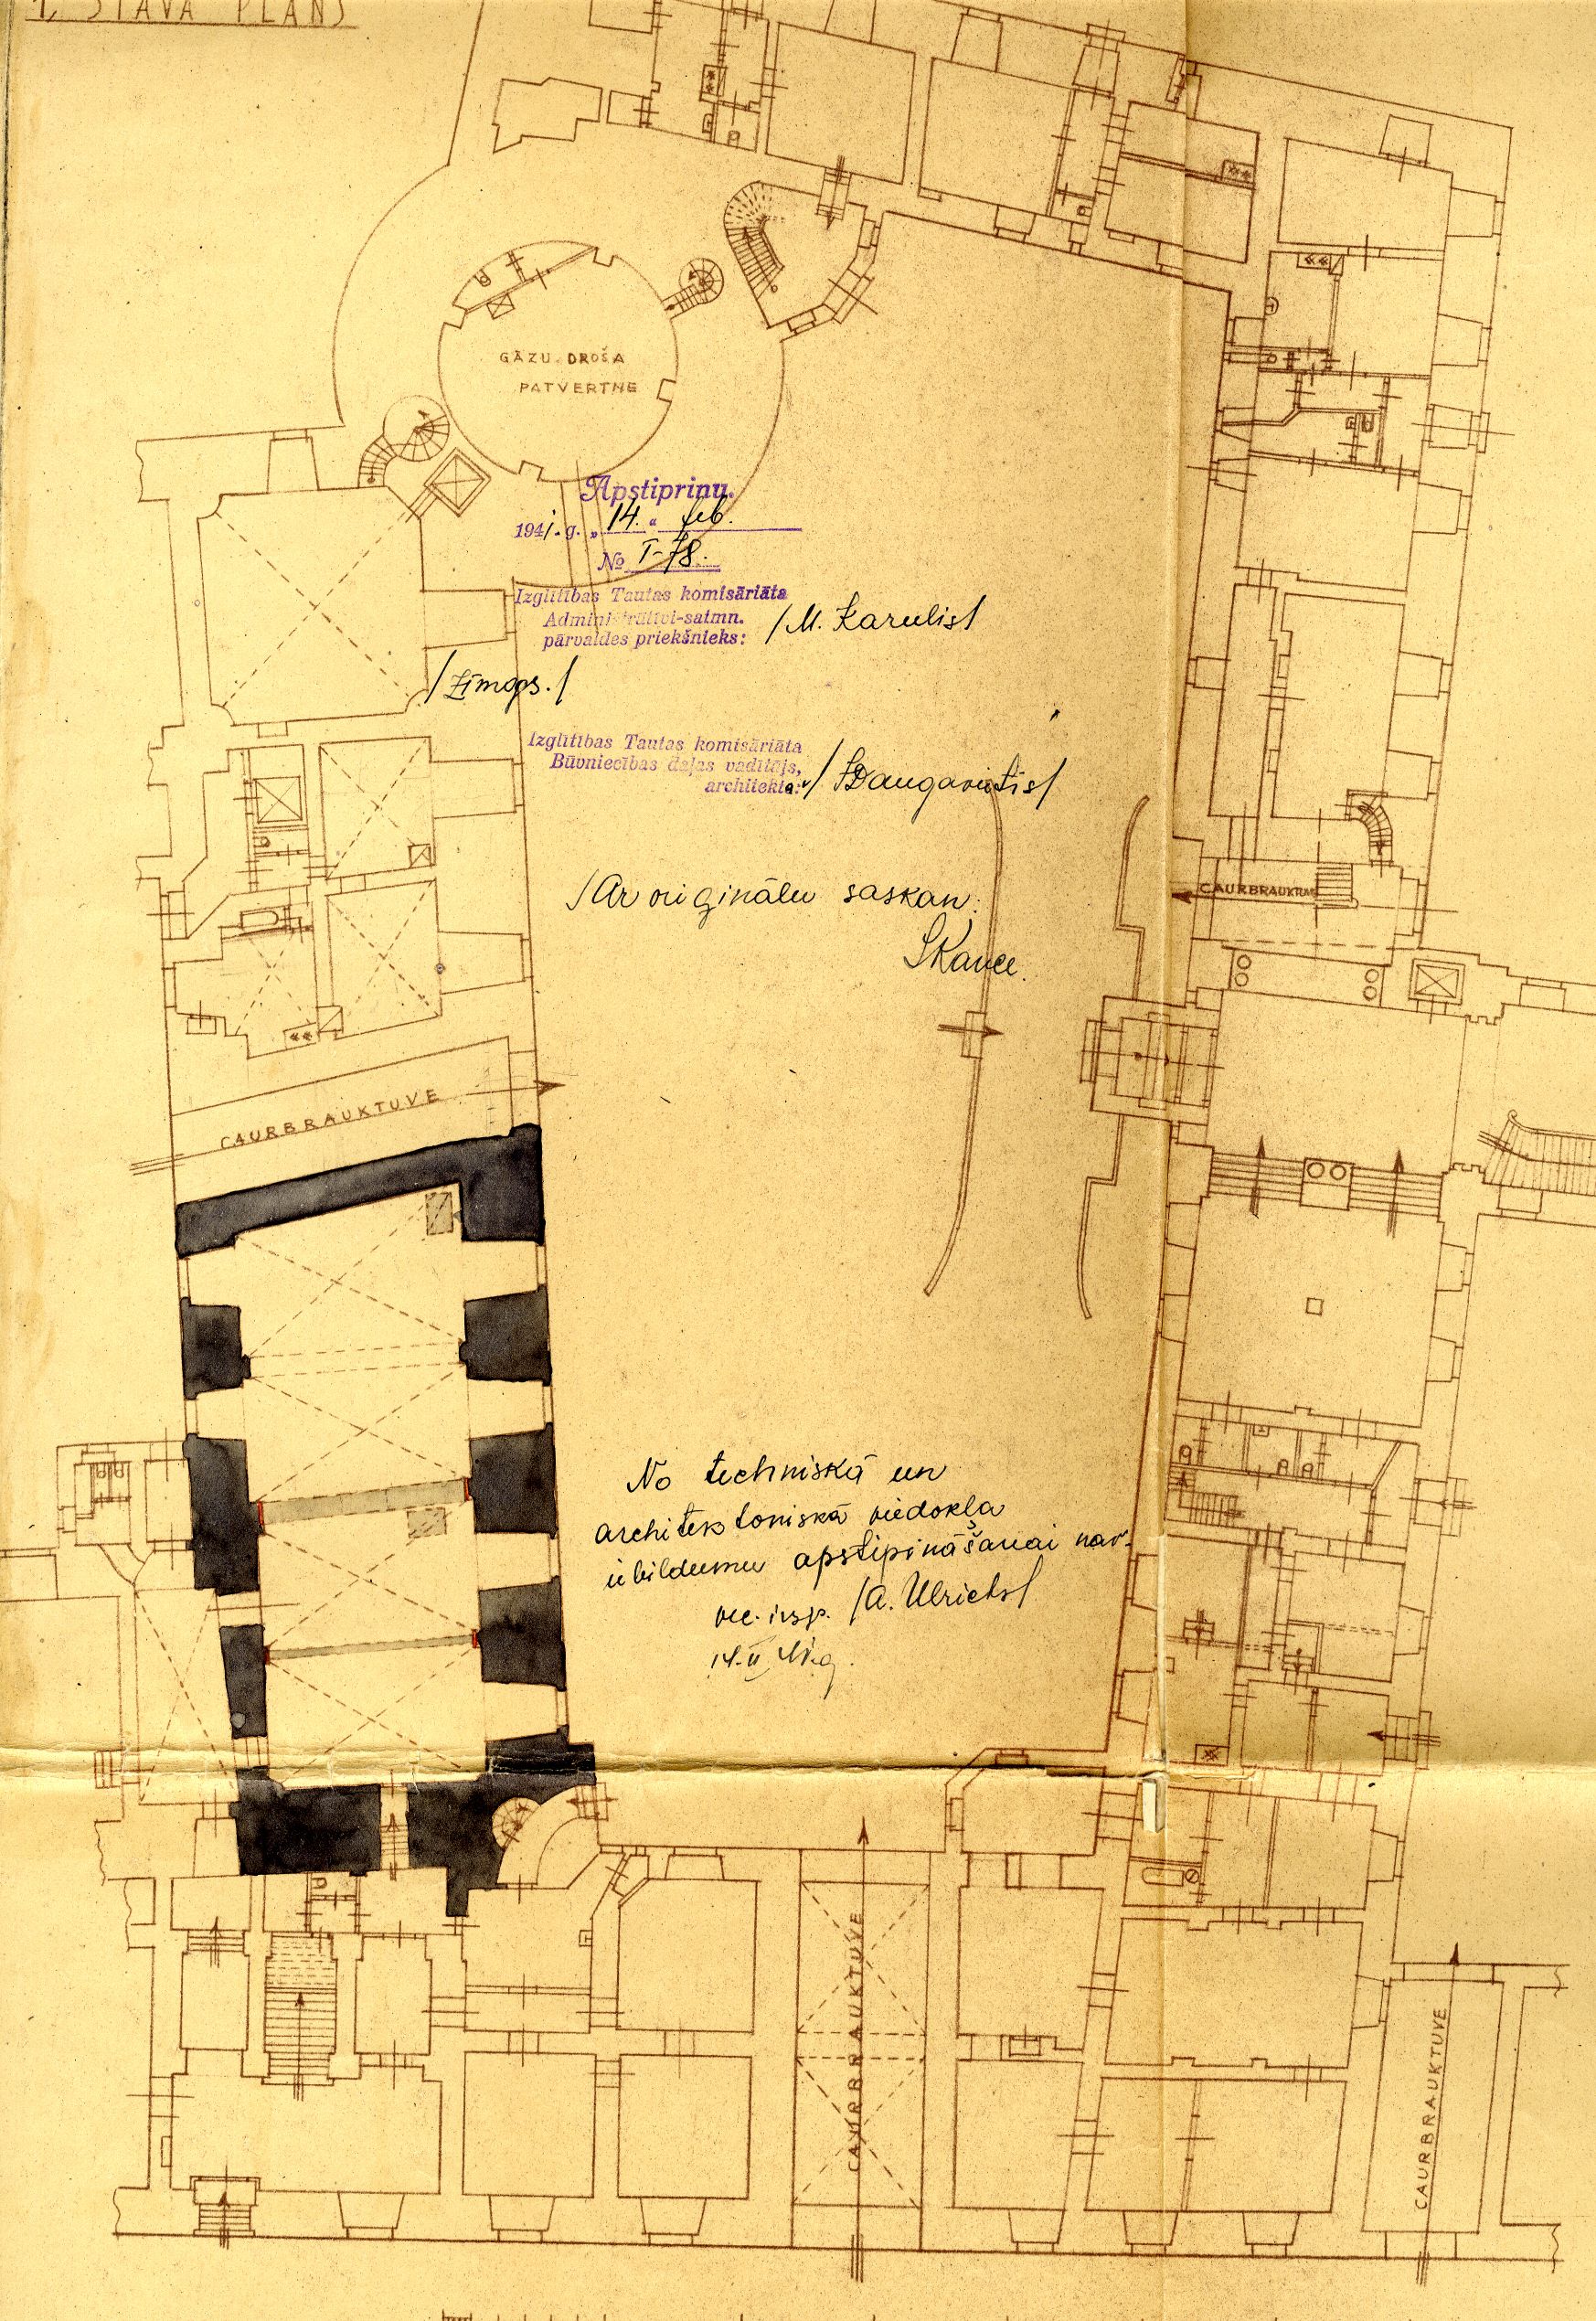 1. STĀVA PLĀNS
GĀZU DROŠA
PATVERTNE
Apstiprinu.
1941. g. „ 14. “ feb.
№ I-78.
Izglītības Tautas komisāriāta
Administrātīvi-saimn.
pārvaldes priekšnieks: /M. Karulis/
/Zīmogs./
Izglītības Tautas komisāriāta
Būvniecības daļas vadītājs,
architekts: / Daugavietis/
/Ar oriģinālu saskan:
SKauce.
CAURBRAUKTUVE
CAURBRAUKTUVE
No techniskā un
architektoniskā viedokļa
iebildumu apstiprināšanai nav.
vec. insp. /A. Ulrichs/
14.II 41.g.
CAURBRAUKTUVE
CAURBRAUKTUVE